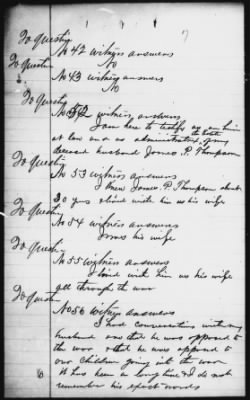 To Questn
No 42 witness answers
No
To Questn
No 43 witness answers
No
To Questn
No 52 witness answers
I am here to testify as an heir
at law and as administratrix of my
deceased husband James. P. Thompson
To Questn
No 53 witness answers
I knew James. P. Thompson about
30 yrs & lived with him as his wife
To Questn
No 54 witness answers
I was his wife
To Questn
No 55 witness answers
I lived with him as his wife
all through the war
To Questn
No 56 witness answers
I had conversations with my
husband and that he was opposed to
the war & that he was opposed to
our children going into the war
It has been so long time & I do not
remember his exact words
6